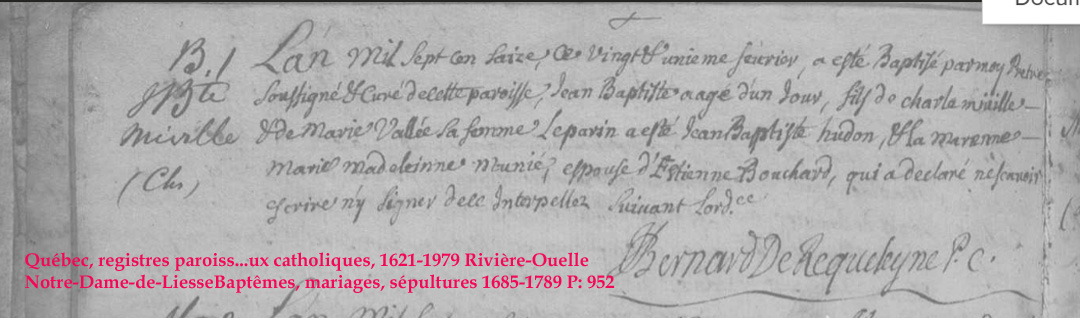 B. /
J Bte
Miville
(Chs)
Lan mil sept cen saize, ce vingt & unieme feurier, a esté Baptisé par moy Pretre
soussigné & Curé de cette paroisse, Jean Baptiste aagé dun Jour, fils de charle miuille
& de Marie Vallée sa femme Le parin a esté Jean Baptiste hudon, & la marenne
Marie madoleinne meunié, espouse d'Estienne Bouchard, qui a declaré ne scauoir
escrire n'y signer de ce Interpellez suiuant lord.ce
Bernard De Requeleyne P. c.
Québec, registres paroiss...ux catholiques, 1621-1979 Rivière-Ouelle
Notre-Dame-de-LiesseBaptêmes, mariages, sépultures 1685-1789 P: 952
Lan Mil